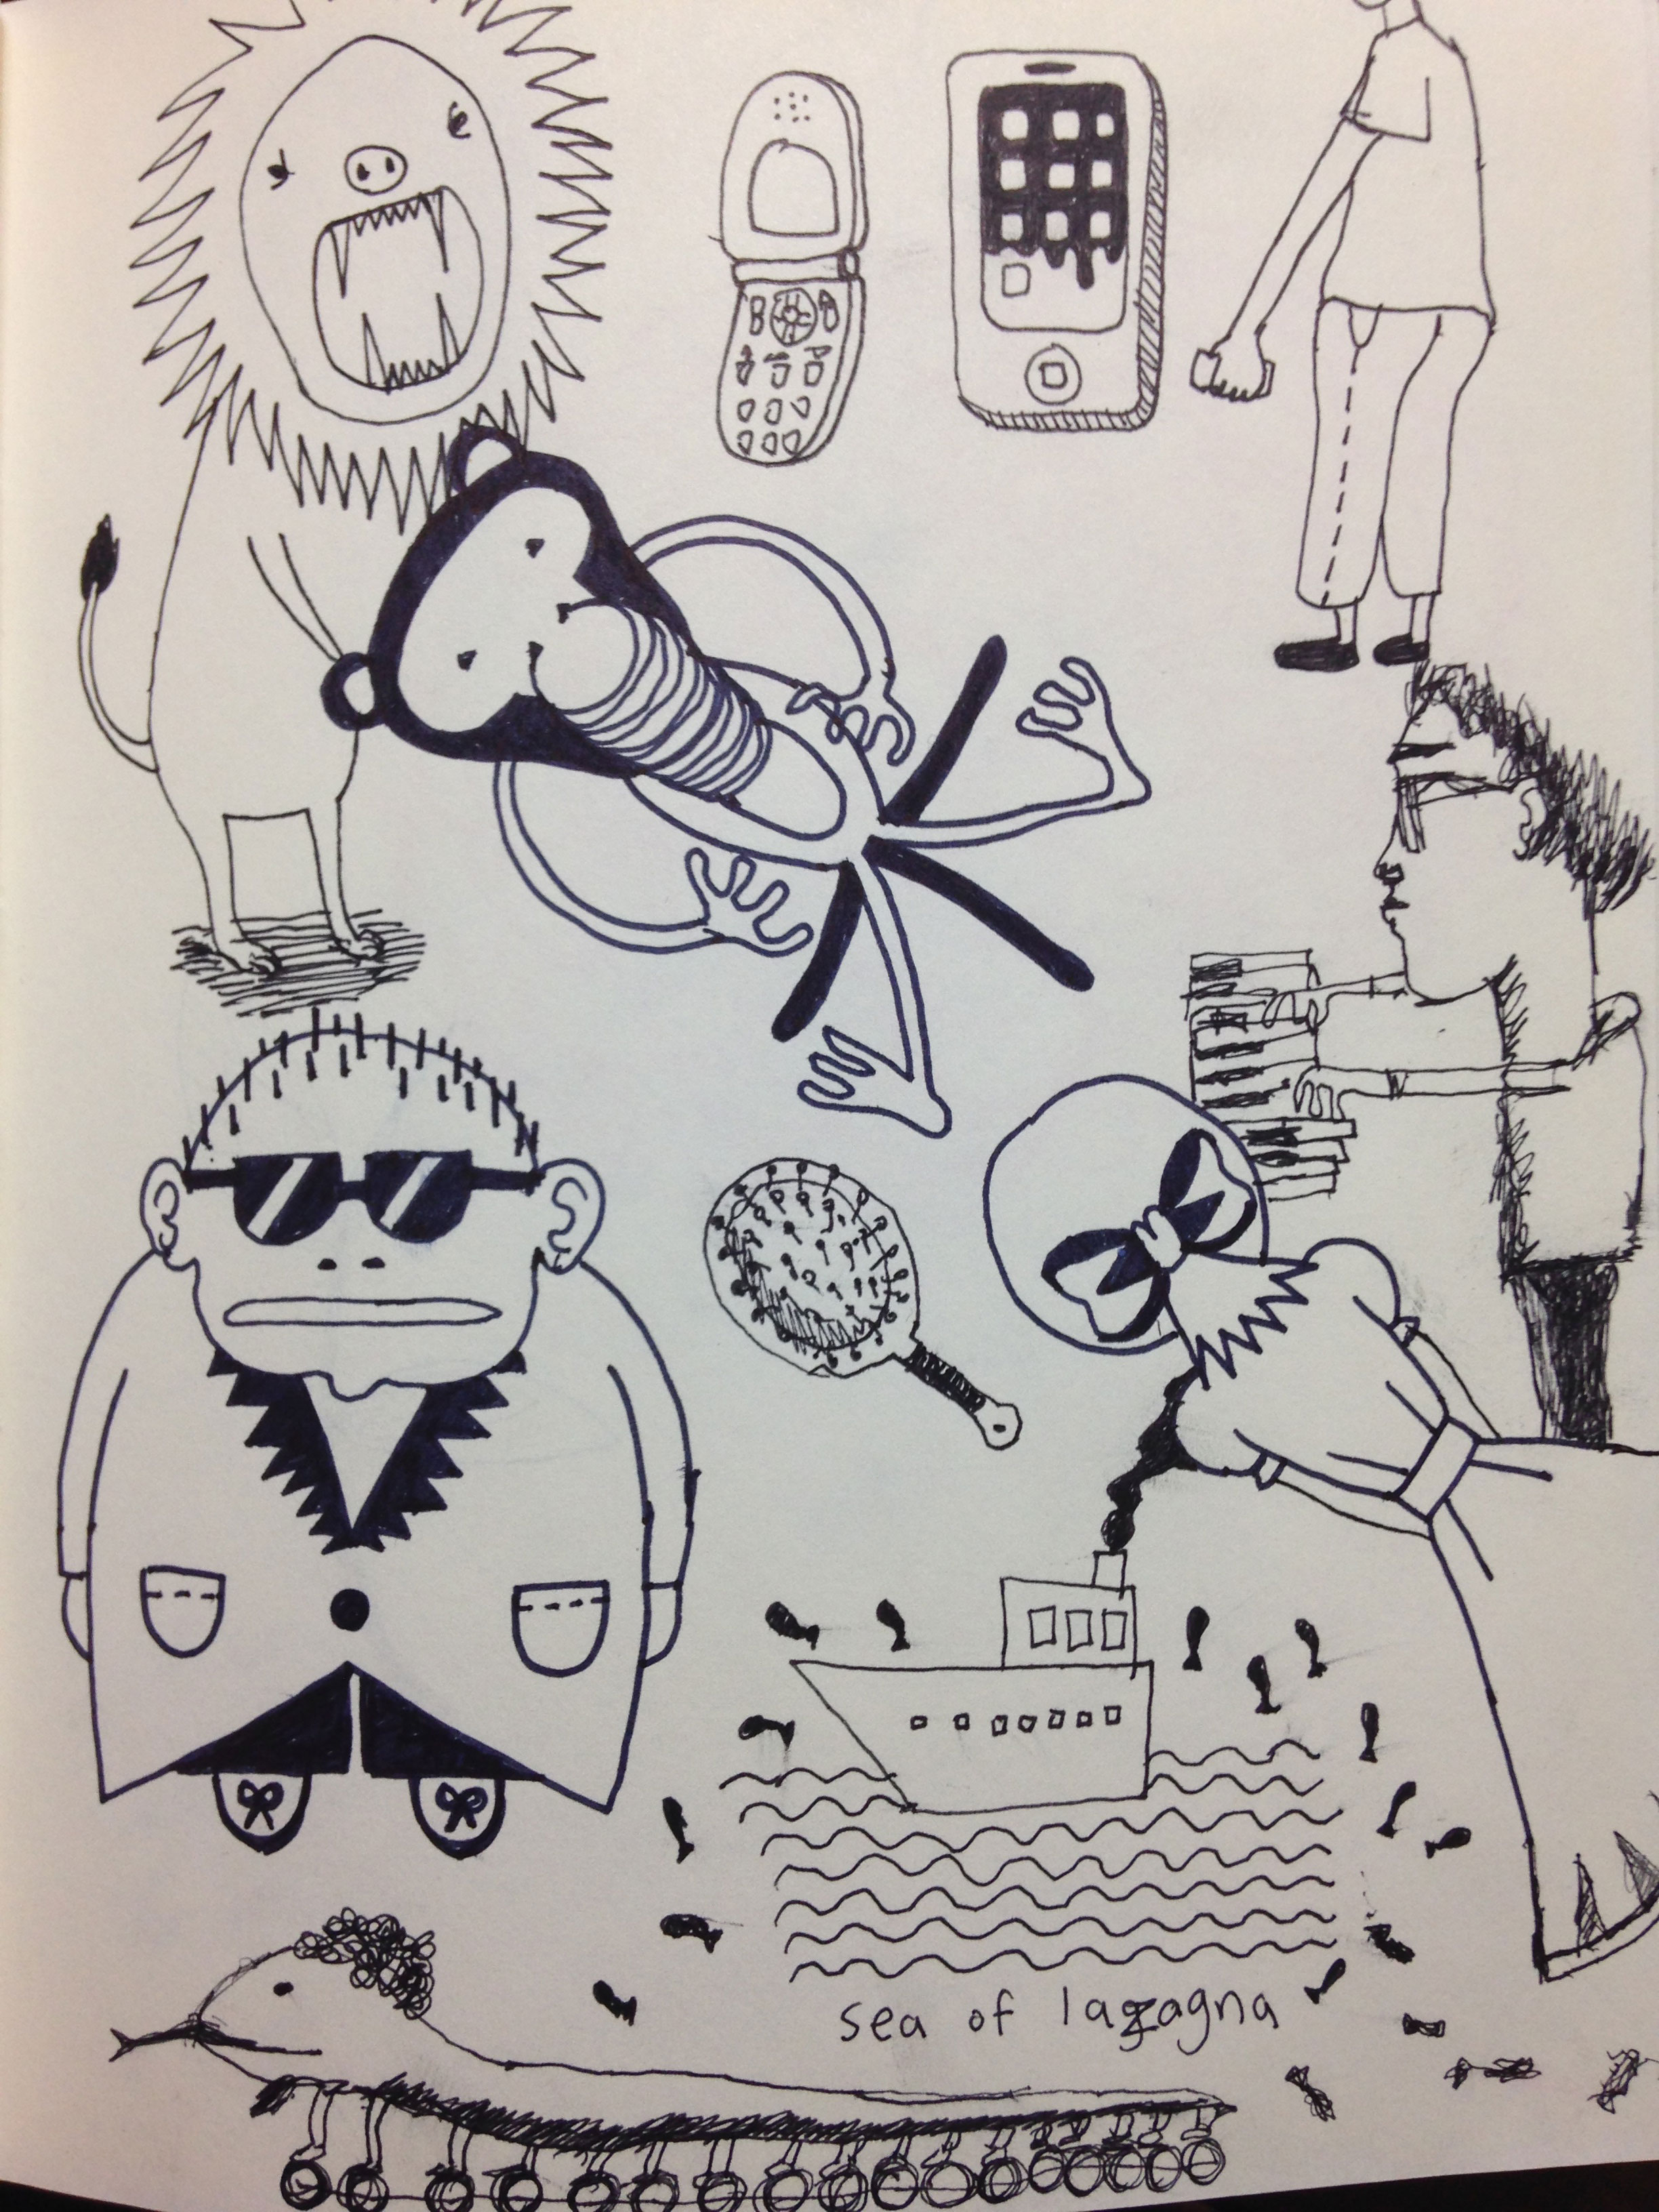 sea of lazagna